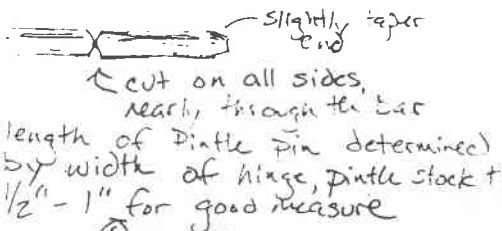 slightly taper
end
cut on all sides,
nearly through the bar
length of Pintle pin determined
by width of hinge, pintle stock +
1/2" - 1" for good measure